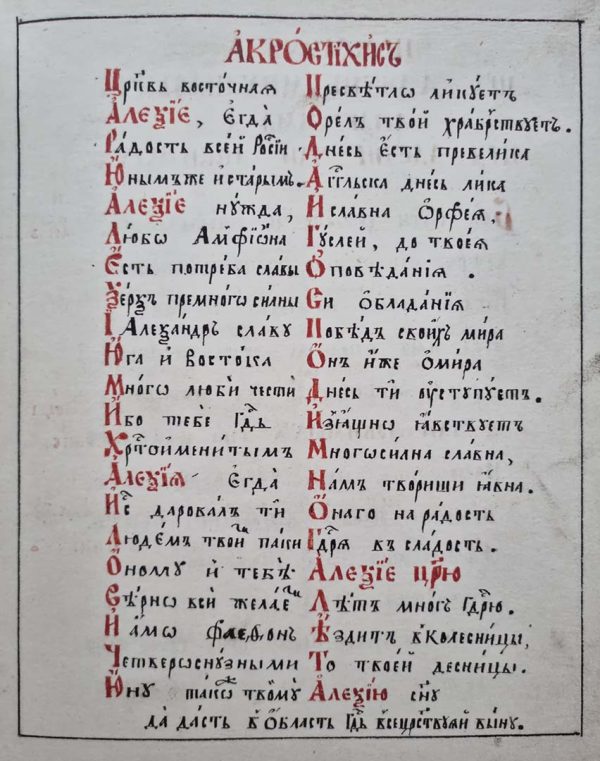 А҆КРО́СТІХИСЪ
Цр҃ковь восточная Пресвѣтлѡ ликꙋетъ
А҆леѯі́е, є҆гда̀ О҆ре́лъ тво́й храбрствꙋетъ.
Ра́дость всей Росі́и Дне́сь є҆́сть превели́ка
Ю҆ны́мъ же и҆ ста́рымъ. А҆́гг҃льска дне́сь ли́ка
А҆леѯі́е нꙋ́жда, И҆ сла́вна Ѻ҆рфе́я,
Любо̀ А҆мфїѡ́на Гꙋ́слей, до твоея̀
Є҆́сть потре́ба сла́вы Ѻ҆повѣ́данїя.
Ѯе́рѯъ премно́гѡ си́лны Си ѡ҆блада́нїя
І҆ Алеѯа́ндръ сла́вꙋ Побѣ́дъ свои́хъ ми́ра
Ю҆́га и҆ восто́ка Ѻ҆́нъ ни́же ѻ҆ми́ра
Мно́гѡ лю́би че́сти Дне́сь тѝ ᲂу҆стꙋпꙋ́етъ.
И҆́бо тебѐ Гд҇ь И҆зѧ́щнѡ ꙗ҆́вствꙋетъ
Хр҇тоимени́тымъ Многоси́лна сла́вна,
А҆леѯі́а є҆гда̀ На́мъ твори́ши ꙗ҆́вна.
І҆с҃ дарова́лъ тѝ Ѻ҆́наго на ра́дость
Лю́демъ твои̑мъ па́ки Гдⷭ҇рѧ въ сла́дость.
Ѻ҆́номꙋ и҆ тебѣ̀ А҆леѯі́е цр҃ю̀
Вѣ́рнѡ всѝ жела́емъ Лѣ́тъ мно́гъ Гдⷭ҇рю.
И҆ а҆́мѡ фае́ѳонъ ѣ҆́здитъ в колесни́цы,
Четверосꙋ́зными То̀ твое́й десни́цы.
Ю҆́нꙋ та́кѡ твоемꙋ̀ А҆леѯі́ю сн҃ꙋ
да да́сть в ѻ҆́бласть Гд҇ь всецрⷭ҇твꙋй вы́нꙋ.